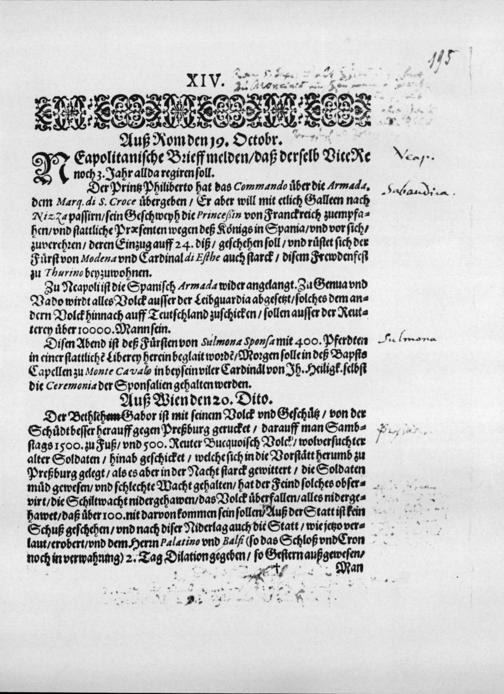 195
XIV.
Auß Rom den 19. Octobr.
NEapolitanische Brieff melden/daß derselb Vice Re
noch 3. Jahr allda regiren soll.
Neap.
Der Printz Philiberto hat das Commando über die Armada,
Sabaudica.
dem Marq. di S. Croce übergeben/ Er aber will mit etlich Galleen nach
Nizza passirn/sein Geschweyh die Princeßin von Franckreich zuempfa-
hen/vnd stattliche Præsenten wegen deß Königs in Spania/vnd vor sich/
zuverehren/ deren Einzug auff 24. diß/ geschehen soll/ vnd rüstet sich der
Fürst von Modena vnd Cardinal di Esthe auch starck/ disem Frewdenfest
zu Thurino beyzuwohnen.
Zu Neapoli ist die Spanisch Armada wider angelangt. Zu Genua vnd
Vado wirdt alles Volck ausser der Leibguardia abgesetzt/solches dem an-
dern Volck hinnach auff Teutschland zuschicken/ sollen ausser der Reut-
terey über 10000. Mann sein.
Disen Abend ist deß Fürsten von Sulmona Sponsa mit 400. Pferdten
Sulmona
in einer stattliche Liberey herein beglait worde/ Morgen solle in deß Bapsts
Capellen zu Monte Cavalo in beysein viler Cardinäl von Ih. Heiligk. selbst
die Ceremonia der Sponsalien gehalten werden.
Auß Wien den 20. Dito.
Der Bethlehem Gabor ist mit seinem Volck vnd Geschütz/ von der
Schüdt besser herauff gegen Preßburg gerucket/ darauff man Samb-
stags 1500. zu Fuß/ vnd 500. Reuter Bucquoisch Volck/ wolversuchter
alter Soldaten/ hinab geschicket/ welche sich in die Vorstätt herumb zu
Preßburg gelegt/ als es aber in der Nacht starck gewittert/ die Soldaten
müd gewesen/ vnd schlechte Wacht gehalten/ hat der Feind solches obser-
virt/die Schiltwacht nidergehawen/das Volck überfallen/alles niderge-
hawet/daß über 100. nit darvon kommen sein sollen/Auß der Statt ist kein
Schuß geschehen/ vnd nach diser Niderlag auch die Statt/ wie jetzo ver-
laut/erobert/vnd dem Herrn Palatino vnd Balsi (so das Schloß vnd Cron
noch in verwahrung) 2. Tag Dilation gegeben/ so Gestern außgewesen/
Man